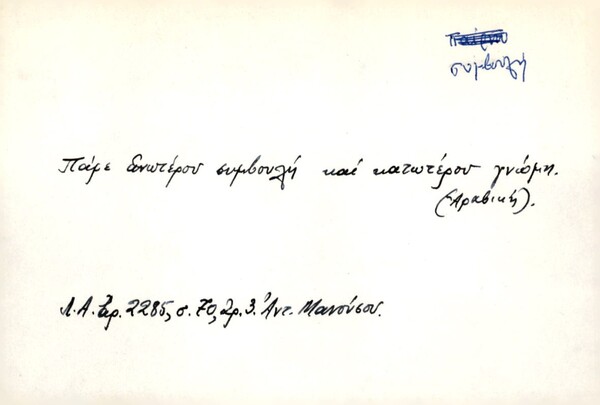 συμβουλή
Πάρε ἀνωτέρου συμβουλή καί κατωτέρου γνώμη.
(Ἀραβική).
Λ.Α. ἀρ. 2285, σ. 70, ἀρ. 3. Ἀντ. Μανούσου.